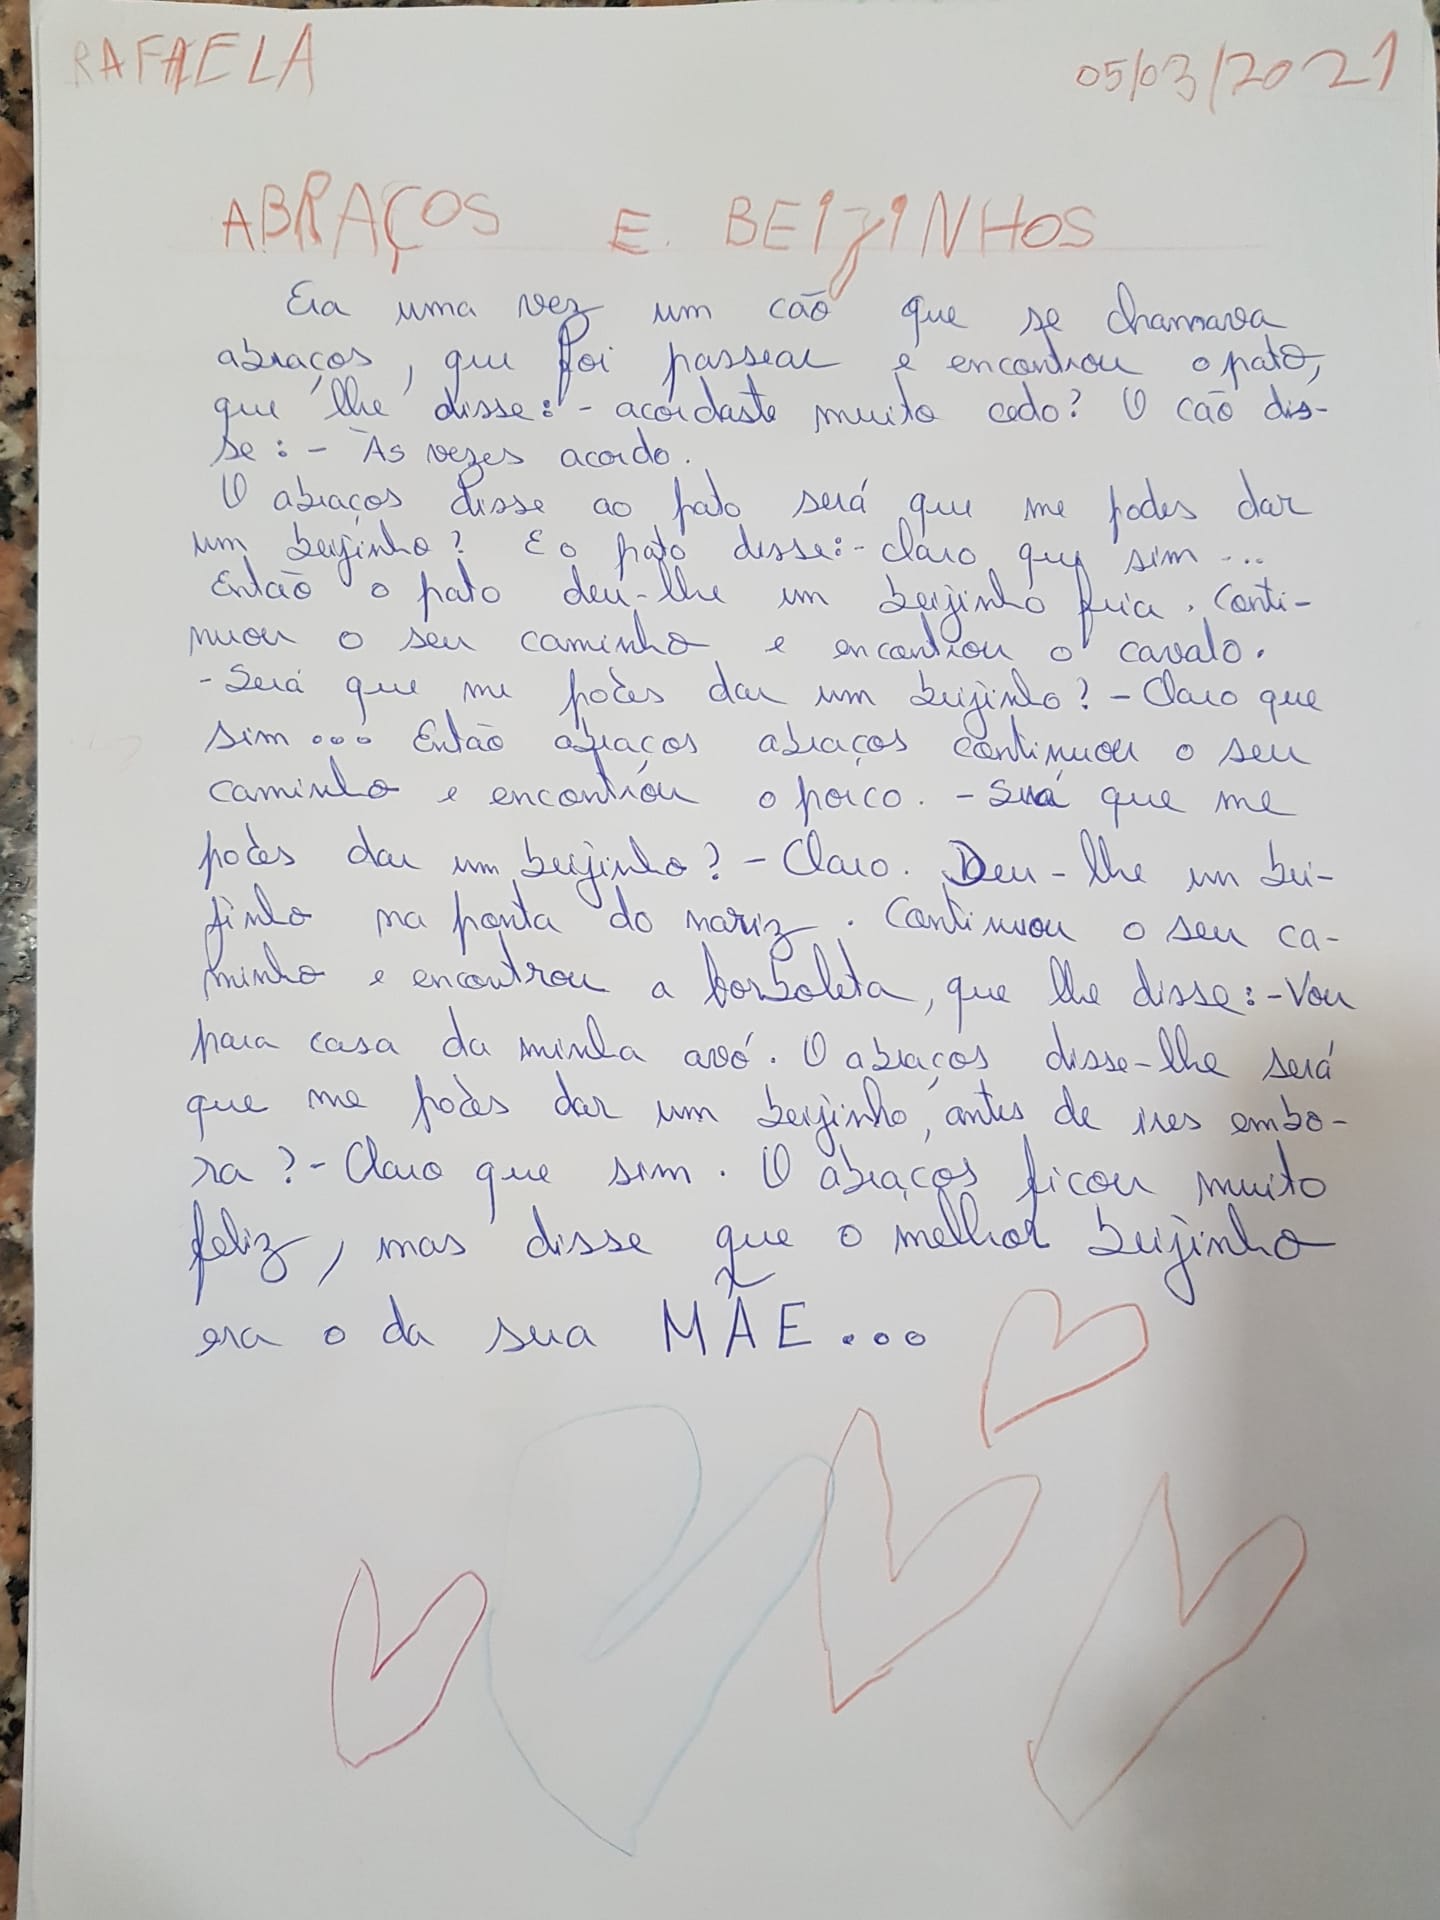 RAFAELA 05/03/2021
ABRAÇOS E BEIJINHOS
Era uma vez um cão que se chamava
abraços, que foi passear e encontrou o pato,
que lhe disse: - acordaste muito cedo? O cão dis-
se: - Às vezes acordo.
O abraços disse ao pato será que me podes dar
um beijinho? E o pato disse: - claro que sim ...
Então o pato deu-lhe um beijinho fria. Conti-
nuou o seu caminho e encontrou o cavalo.
- Será que me podes dar um beijinho? - Claro que
sim ... Então abraços abraços continuou o seu
caminho e encontrou o porco. - Será que me
podes dar um beijinho? - Claro. Deu-lhe um bei-
jinho na ponta do nariz. Continuou o seu ca-
minho e encontrou a borboleta, que lhe disse: - Vou
para casa da minha avó. O abraços disse-lhe será
que me podes dar um beijinho, antes de ires embo-
ra? - Claro que sim. O abraços ficou muito
feliz, mas disse que o melhor beijinho
era o da sua MÃE ...